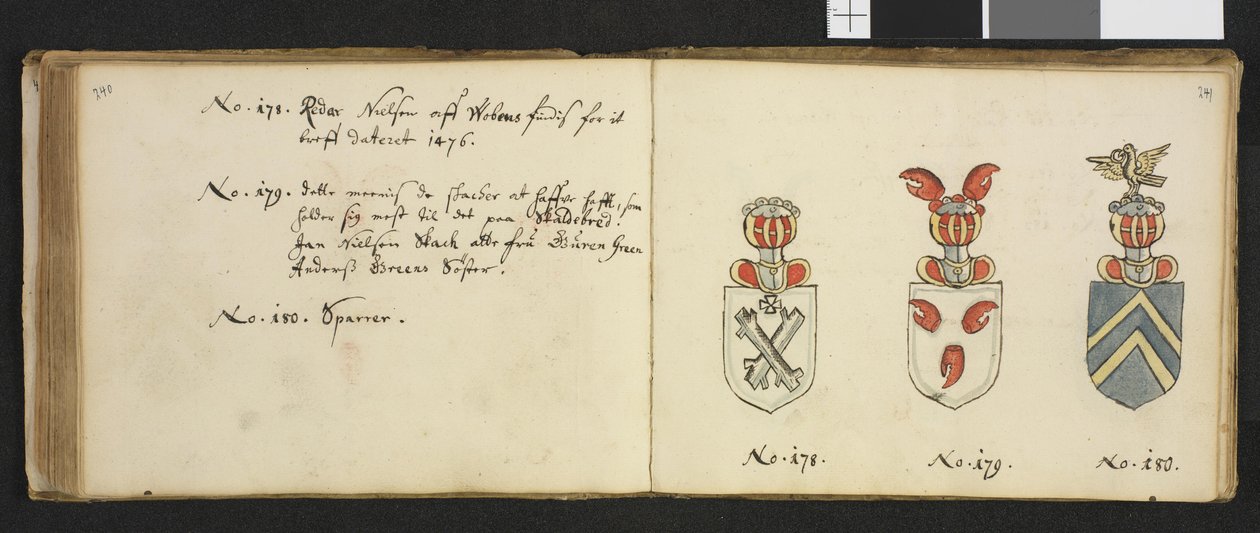 240
No. 178. Redar Nielsen aff Wobens findis for it
breff dateret 1476.
No. 179. dette meenis de skacher at haffve hafft, som
holder sig mest til det paa Skaldebred.
Jan Nielsen Skach atte fru Guren Green
Anderss Greens Søster.
No. 180. Sparrer.
241
No. 178.
No. 179.
No. 180.